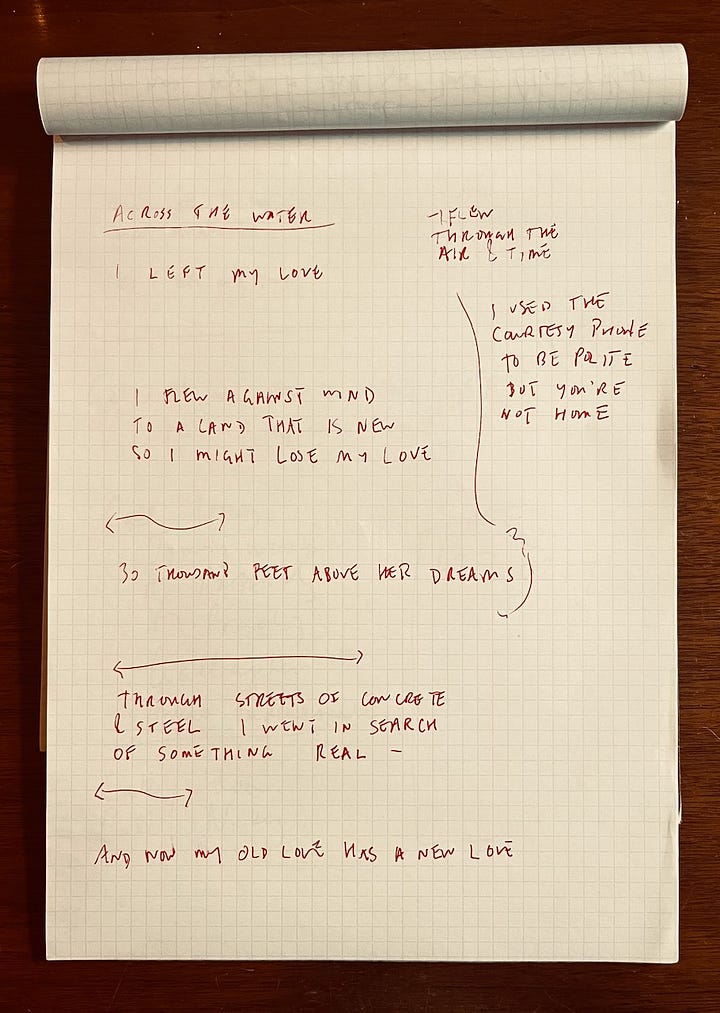 ACROSS THE WATER
I LEFT MY LOVE
-I FLEW
THROUGH THE
AIR & TIME
I USED THE
COURTESY PHONE
TO BE POLITE
BUT YOU'RE
NOT HOME
I FLEW AGAINST MIND
TO A LAND THAT IS NEW
SO I MIGHT LOSE MY LOVE
30 THOUSAND FEET ABOVE HER DREAMS
THROUGH STREETS OF CONCRETE
& STEEL I WENT IN SEARCH
OF SOMETHING REAL –
AND NOW MY OLD LOVE HAS A NEW LOVE